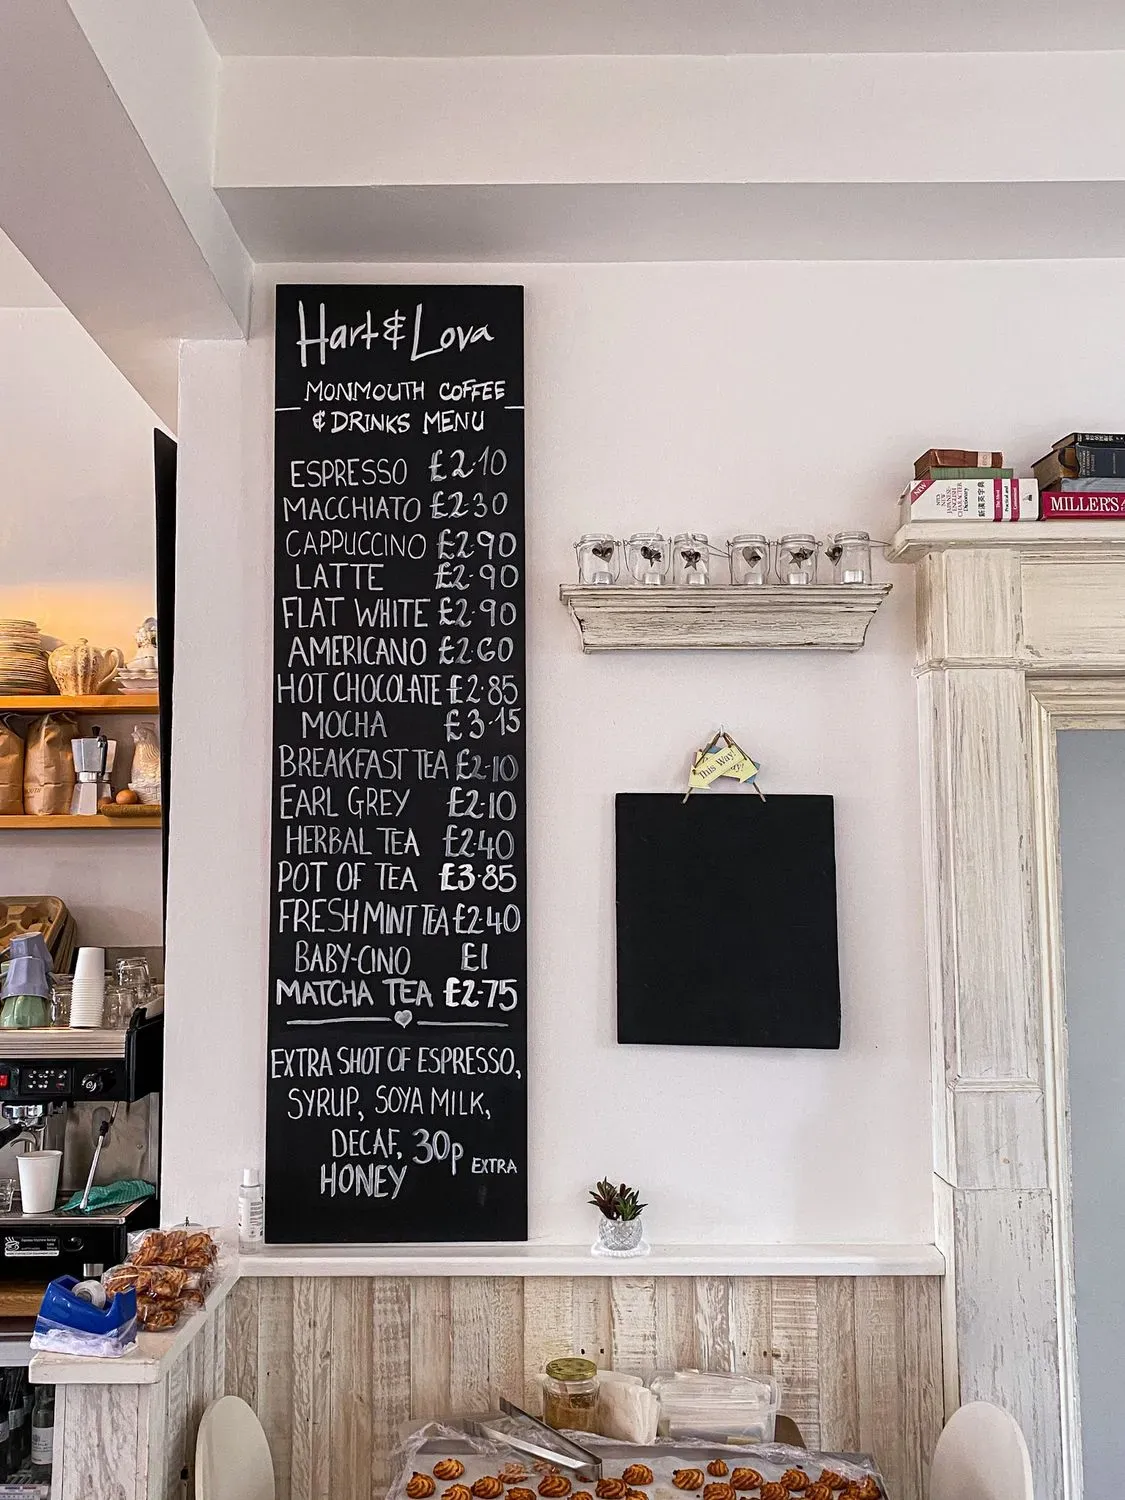 Hart & Lova
MONMOUTH COFFEE
& DRINKS MENU
ESPRESSO £2.10
MACCHIATO £2.30
CAPPUCCINO £2.90
LATTE £2.90
FLAT WHITE £2.90
AMERICANO £2.60
HOT CHOCOLATE £2.85
MOCHA £3.15
BREAKFAST TEA £2.10
EARL GREY £2.10
HERBAL TEA £2.40
POT OF TEA £3.85
FRESH MINT TEA £2.40
BABY-CINO £1
MATCHA TEA £2.75
EXTRA SHOT OF ESPRESSO,
SYRUP, SOYA MILK,
DECAF, 30p EXTRA
HONEY
This Way!
NEW
JAPANESE-
ENGLISH
CHARACTER
Dictionary
新漢英字典
MILLER'S